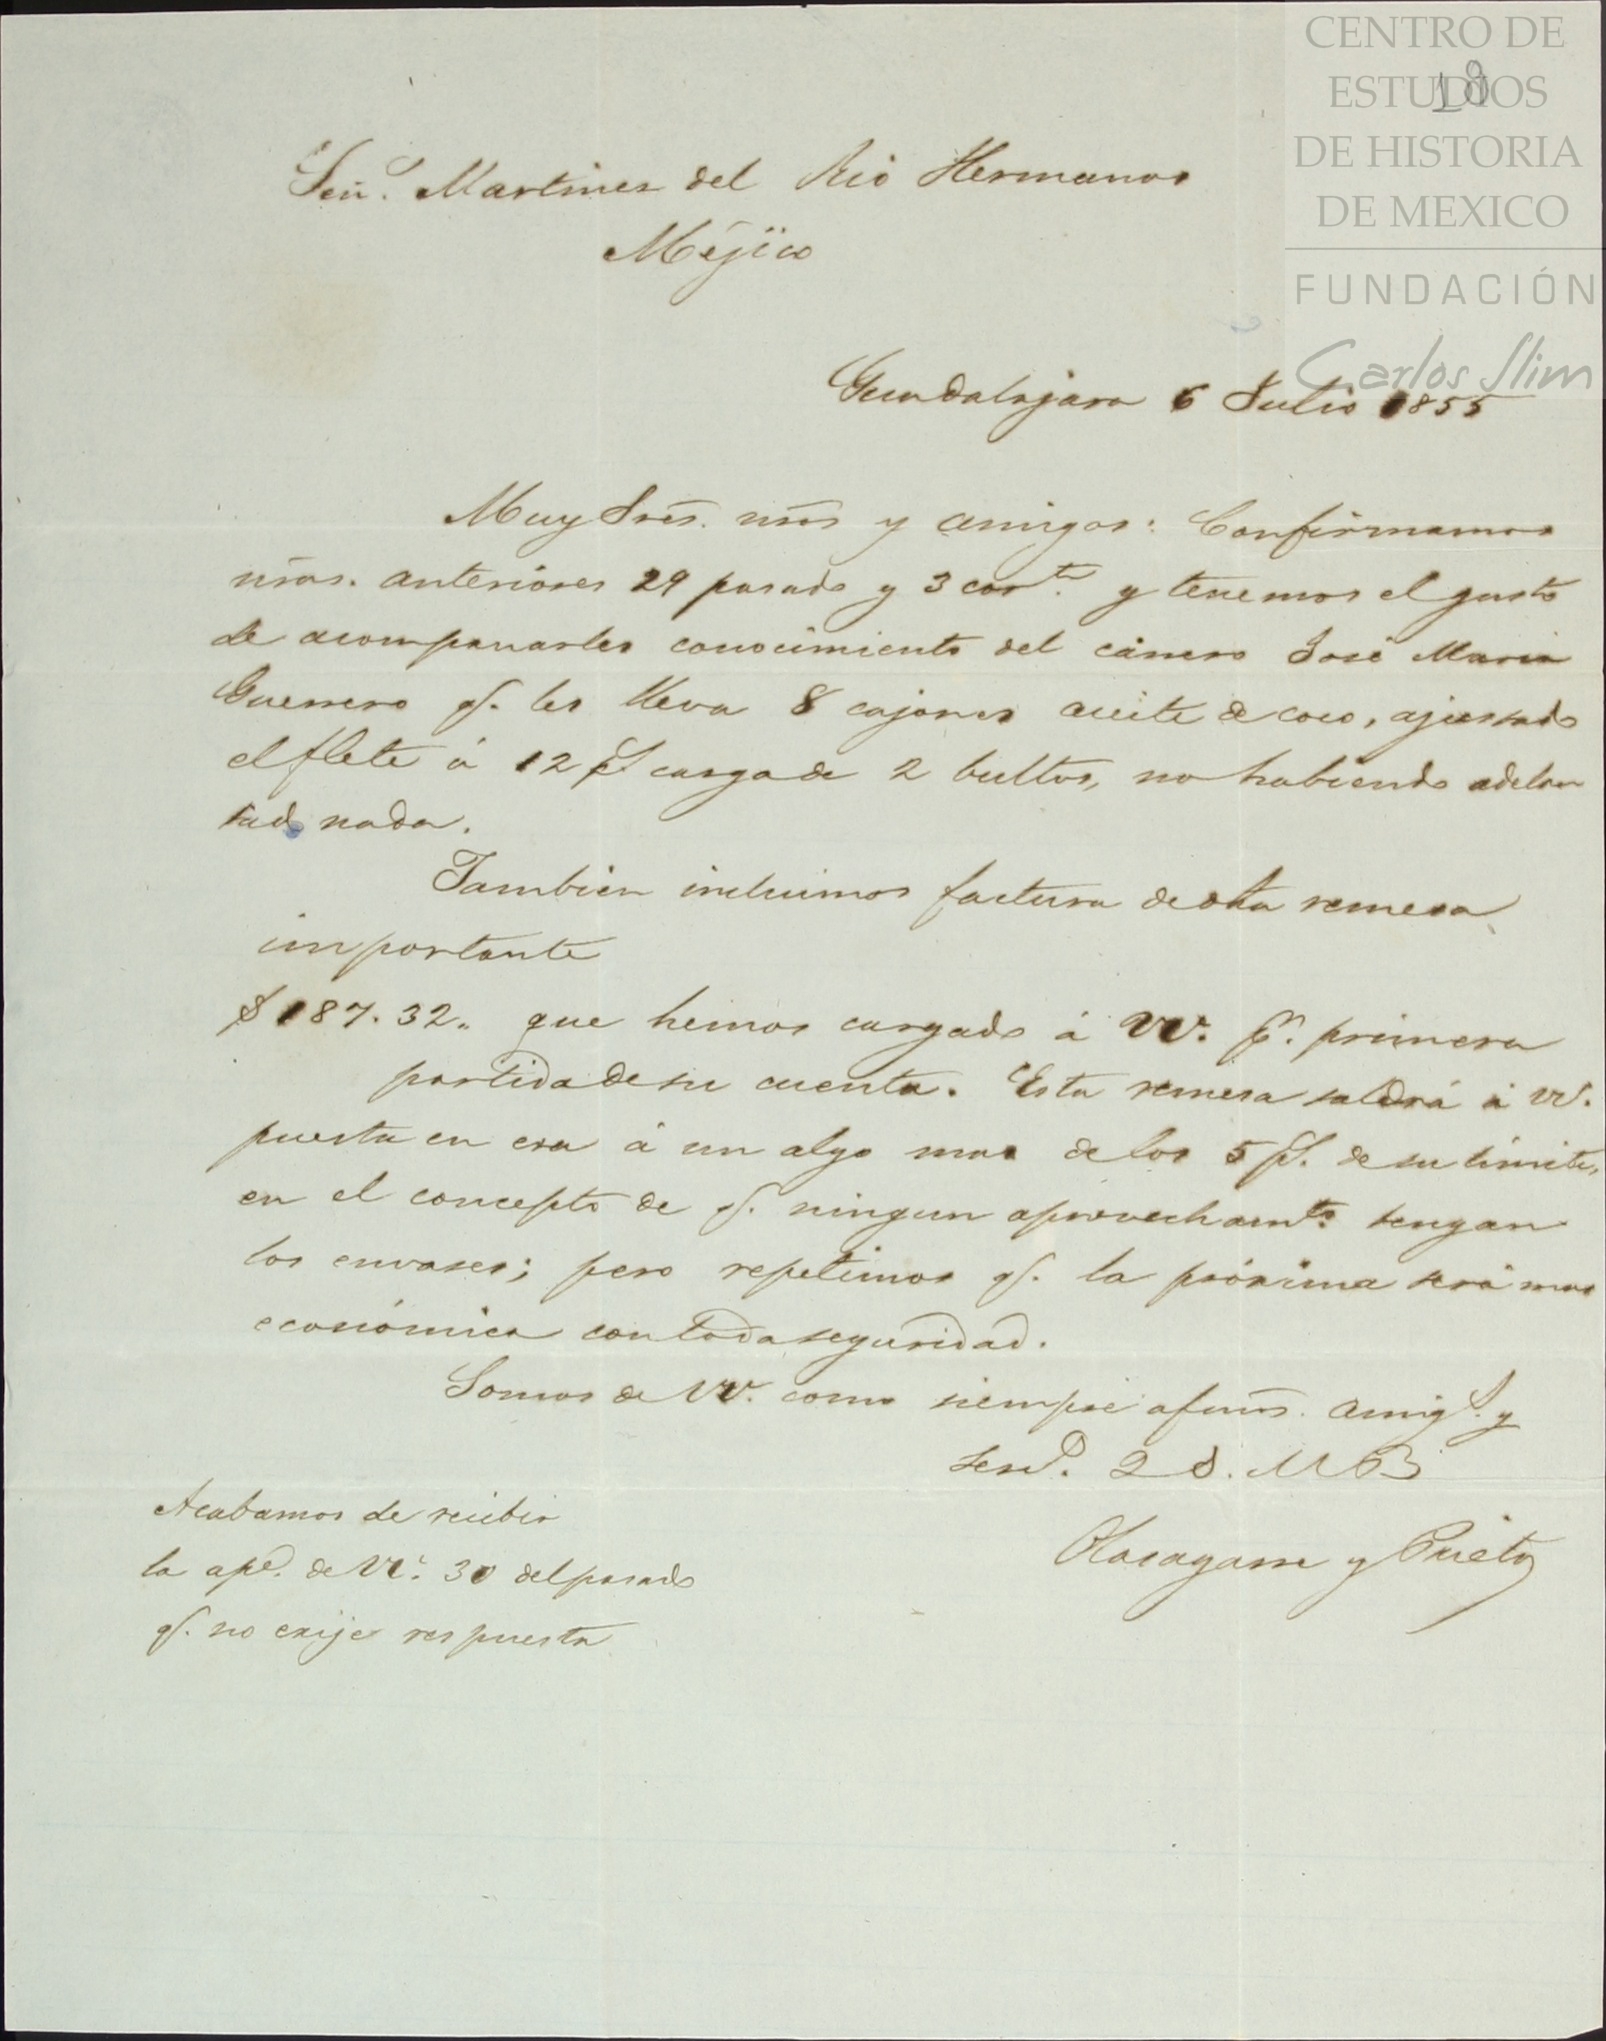 CENTRO DE
ESTUDIOS
DE HISTORIA
DE MEXICO
FUNDACIÓN
Carlos Slim
18
Señ.s Martinez del Rio Hermanos
Méjico
Guadalajara 6 Julio 1855
Muy Sres. nros y amigos: Confirmamos
nras. anteriores 29 pasado y 3 corte. y tenemos el gusto
de acompañarles conocimiento del carrero José Maria
Guerrero q. les lleva 8 cajones aceite de coco, ajustado
el flete á 12 ps carga de 2 bultos, no habiendo adelan
tado nada.
Tambien incluimos factura de esta remesa
importante
$187.32.. que hemos cargado á VV. pr. primera
partida de su cuenta. Esta remesa saldrá á VV.
puesta en esa á un algo mas de los 5 ps. de su límite,
en el concepto de q. ningun aprovechamto. tengan
los envases; pero repetimos q. la próxima será mas
económica con toda seguridad.
Somos de VV. como siempre afmos. amigs. y
servs. Q S. M B
Olasagarre y Prieto
Acabamos de recibir
la apde. de VV. 30 del pasado
q. no exije respuesta